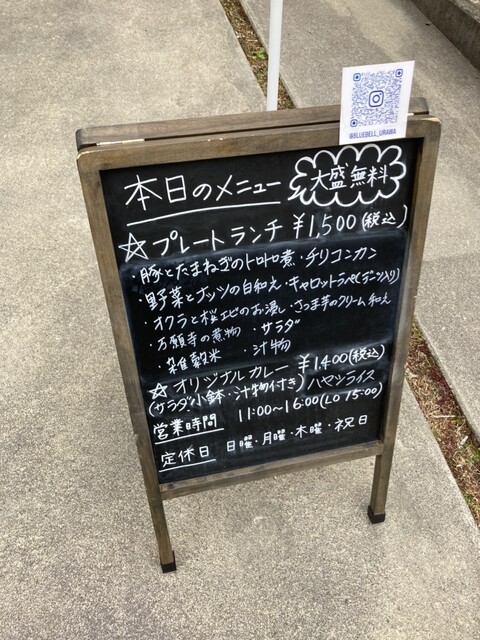 @BLUEBELL_URAWA
本日のメニュー 大盛無料
☆プレートランチ ¥1,500(税込)
・豚とたまねぎのトロトロ煮・チリコンカン
・野菜とナッツの白和え・キャロットラペ(デーツ入り)
・オクラと桜エビのお浸し・さつま芋のクリーム和え
・万願寺の煮物 ・サラダ
・雑穀米 ・汁物
☆オリジナルカレー ¥1,400(税込)
(サラダ小鉢・汁物付き) ハヤシライス
営業時間 11:00~16:00(LO 15:00)
定休日 日曜・月曜・木曜・祝日